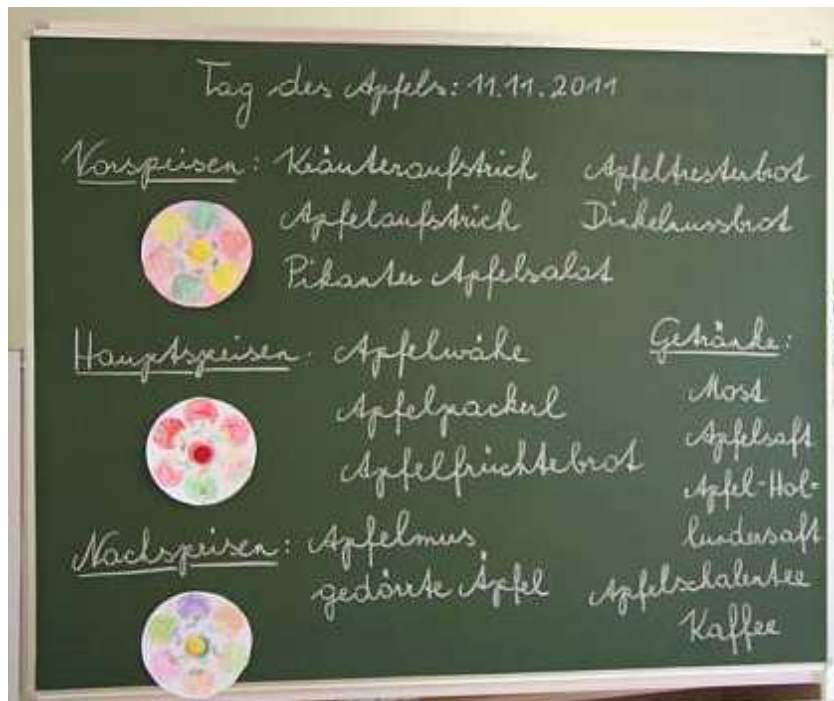 Tag des Apfels: 11.11.2011
Vorspeisen: Kräuteraufstrich Apfeltresterbrot
Apfelaufstrich Dinkelnussbrot
Pikanter Apfelsalat
Hauptspeisen: Apfelwähe
Apfelpackerl
Apfelfrüchtebrot
Nachspeisen: Apfelmus
gedörrte Äpfel
Getränke:
Most
Apfelsaft
Apfel-Hol=
lundersaft
Apfelschalentee
Kaffee